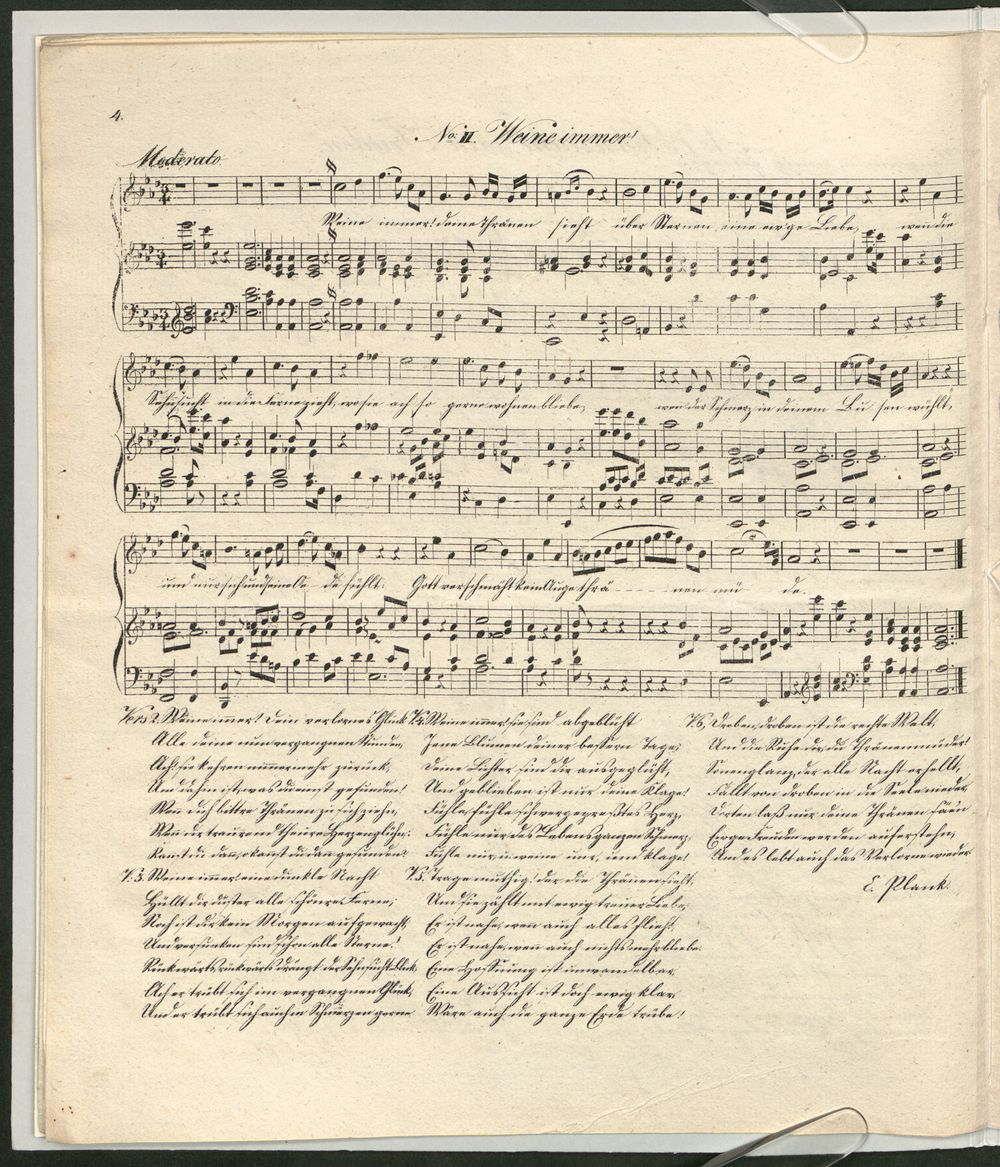 4.
No. II. Weine immer!
Moderato
Weine immer! deine Thränen sieht über Sternen eine ew'ge Liebe, wen die
Sehnsucht in die Ferne zieht, wo sie ach so gerne wohnen bliebe, wen der Schmerz in deinem Busen wühlt,
und nur sich und seine Oede fühlt: Gott verschmäht kein Auge thränenmüde.
Vers 2. Weine immer! dein verlornes Glück
Alle deine nun vergangnen Stunden,
Ach! sie kehren nimmermehr zurück,
Und dahin ist, was du einst gefunden!
Wen dich bitter Thränen zu sich ziehn,
Wenn der treu und theure Herzen glühn:
Kanst du dan, o kanst du dan gesunden.
V. 3. Weine immer! eine dunkle Nacht
Hüllt dir düster alle schönres Ferne;
Noch ist dir kein Morgen aufgewacht,
Und versunken sind schon alle Sterne!
Rückwärts, rückwärts drängt der Sehnsucht Blick,
Ach er trübt sich im vergangnen Glück,
Und er trübt sich auch in Schmerzen gerne
V. 4. Weine immer! sie sind abgeblüht
Jene Blumen deiner bessern Tage;
Deine Lichter sind dir ausgeglüht,
Und geblieben ist nur deine Klage!
Fühle, fühle schwergepresstes Herz,
Fühle nur des Lebens ganzen Schmerz,
Fühle nur, u: weine nur, und klage!
V. 5. Trage muthig! der die Thränen sieht,
Und sie zählt mit ewig treuer Liebe,
Er ist nahe, wen auch alles flieht.
Er ist nahe, wen auch nichts mehr bliebe.
Eine Hoffnung ist unwandelbar,
Eine Aussicht ist doch ewig klar
Wäre auch die ganze Erde trübe!
V. 6. Droben, droben ist die rechte Welt,
Und die Ruhe die du Thränenmüder!
Sonenglanz, der alle Nacht erhellt,
Fällt von droben in die Seele nieder
Dorten laß nur deine Thränen säen
Ewge Freuden werden auferstehn,
Und es lebt auch das Verlorne wieder.
E. Plank.